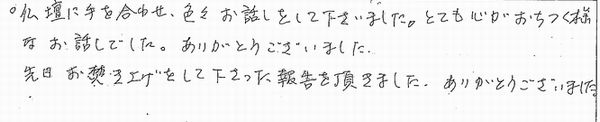 ○仏壇に手を合わせ、色々お話しをして下さいました。とても心がおちつく様
なお話しでした。ありがとうございました.
先日お焚き上げをして下さった報告を頂きました. ありがとうございました